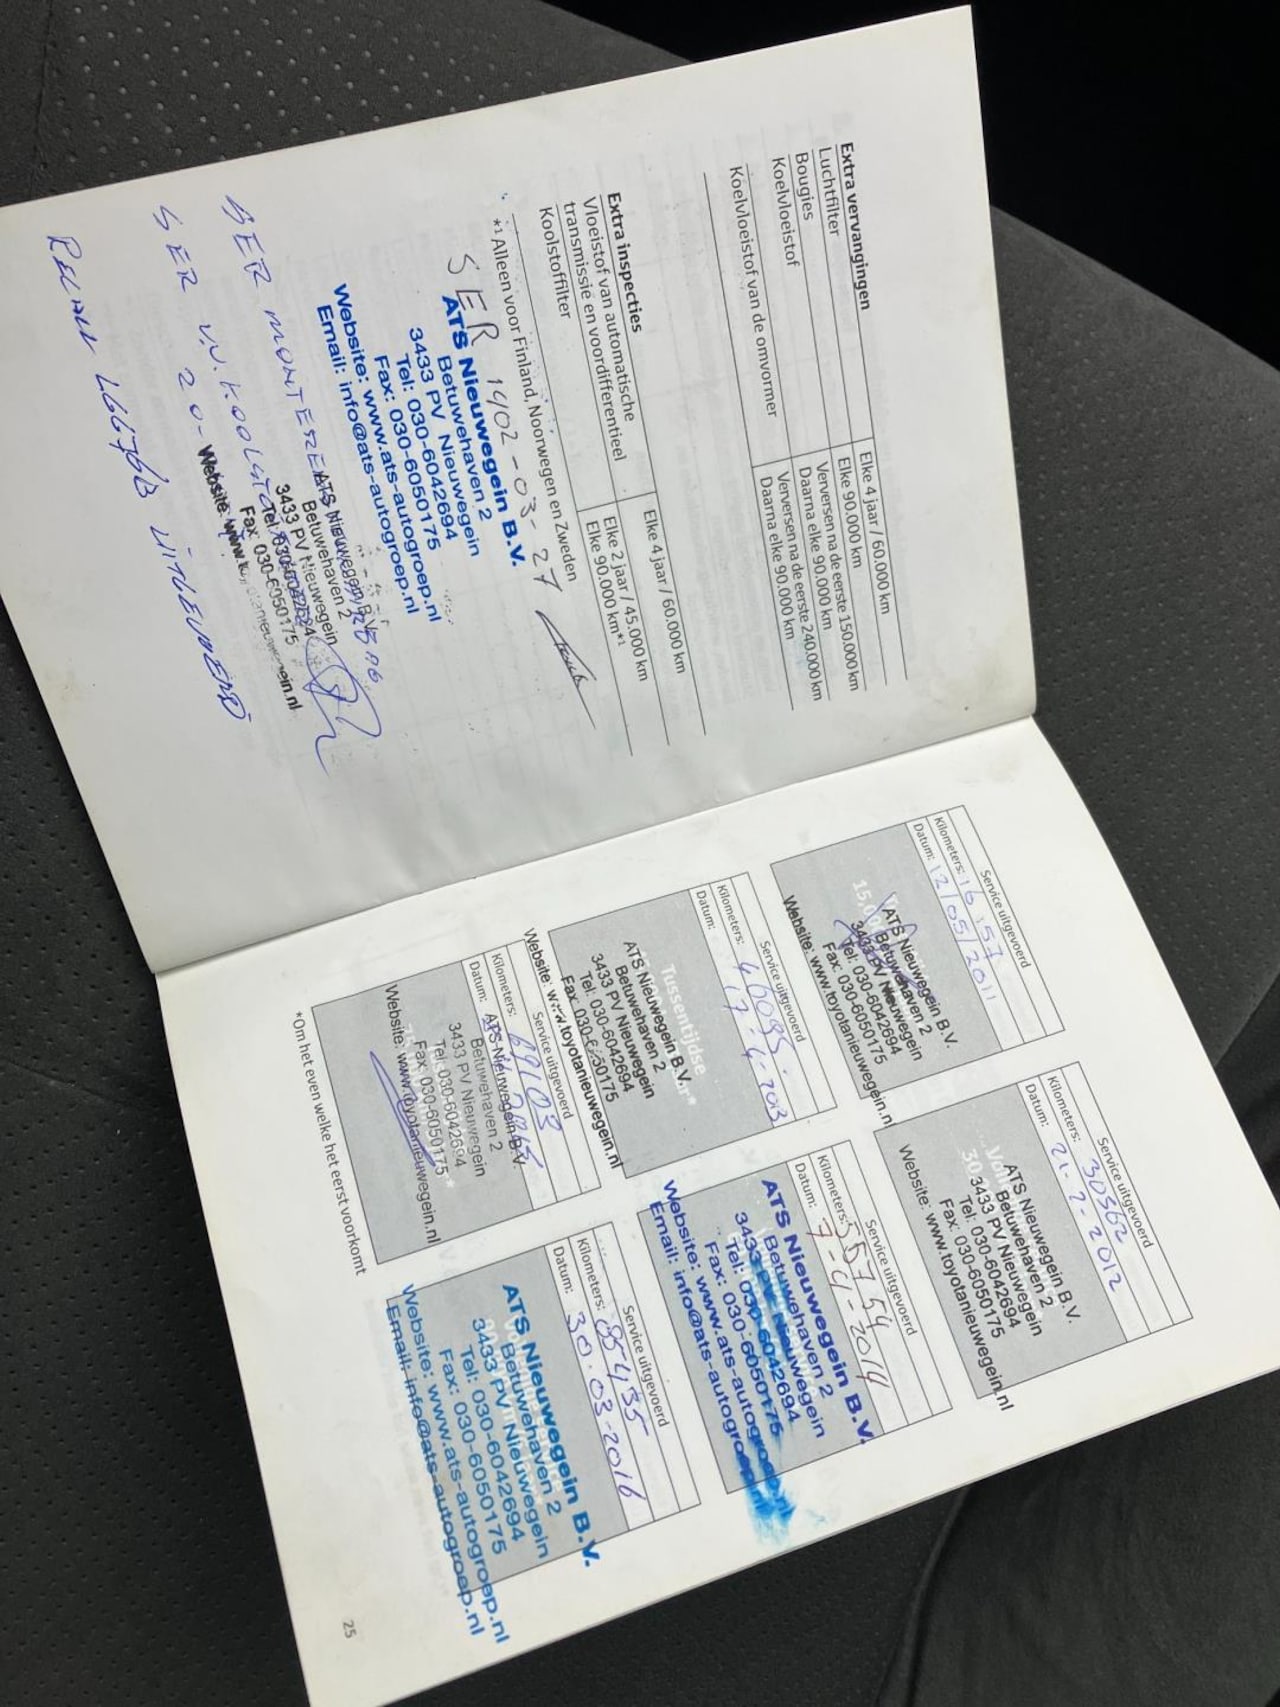 Extra vervangingen
Luchtfilter
Elke 4 jaar / 60.000 km
Bougies
Elke 90.000 km
Koelvloeistof
Verversen na de eerste 150.000 km
Daarna elke 90.000 km
Koelvloeistof van de omvormer
Verversen na de eerste 240.000 km
Daarna elke 90.000 km
Extra inspecties
Vloeistof van automatische
transmissie en voordifferentieel
Elke 4 jaar / 60.000 km
Koolstoffilter
Elke 2 jaar / 45.000 km
Elke 90.000 km*1
*1 Alleen voor Finland, Noorwegen en Zweden
SER 1402-03-27
ATS Nieuwegein B.V.
Betuwehaven 2
3433 PV Nieuwegein
Tel: 030-6042694
Fax: 030-6050175
Website: www.ats-autogroep.nl
Email: info@ats-autogroep.nl
SER
ATS Nieuwegein B.V.
Betuwehaven 2
3433 PV Nieuwegein
Tel: 030-6042694
Fax: 030-6050175
SER 20-
Service uitgevoerd
Kilometers: 16157
Datum: 12/05/2011
ATS Nieuwegein B.V.
Betuwehaven 2
3433 PV Nieuwegein
Tel: 030-6042694
Fax: 030-6050175
Website: www.toyotanieuwegein.nl
Service uitgevoerd
Kilometers: 30362
Datum: 21-2-2012
ATS Nieuwegein B.V.
Betuwehaven 2
3433 PV Nieuwegein
Tel: 030-6042694
Fax: 030-6050175
Website: www.toyotanieuwegein.nl
Service uitgevoerd
Kilometers:
Datum:
Tussentijdse
ATS Nieuwegein B.V.
Betuwehaven 2
3433 PV Nieuwegein
Tel: 030-6042694
Fax: 030-6050175
Website: www.toyotanieuwegein.nl
Service uitgevoerd
Kilometers: 55754
Datum: 7-4-2014
ATS Nieuwegein B.V.
Betuwehaven 2
3433 PV Nieuwegein
Tel: 030-6042694
Fax: 030-6050175
Website: www.ats-autogroep.nl
Email: info@ats-autogroep.nl
Service uitgevoerd
Kilometers: 69103
Datum:
ATS Nieuwegein B.V.
Betuwehaven 2
3433 PV Nieuwegein
Tel: 030-6042694
Fax: 030-6050175
Website: www.toyotanieuwegein.nl
Service uitgevoerd
Kilometers: 85435
Datum: 30.03-2016
ATS Nieuwegein B.V.
Betuwehaven 2
3433 PV Nieuwegein
Tel: 030-6042694
Fax: 030-6050175
Website: www.ats-autogroep.nl
Email: info@ats-autogroep.nl
*Om het even welke het eerst voorkomt
25